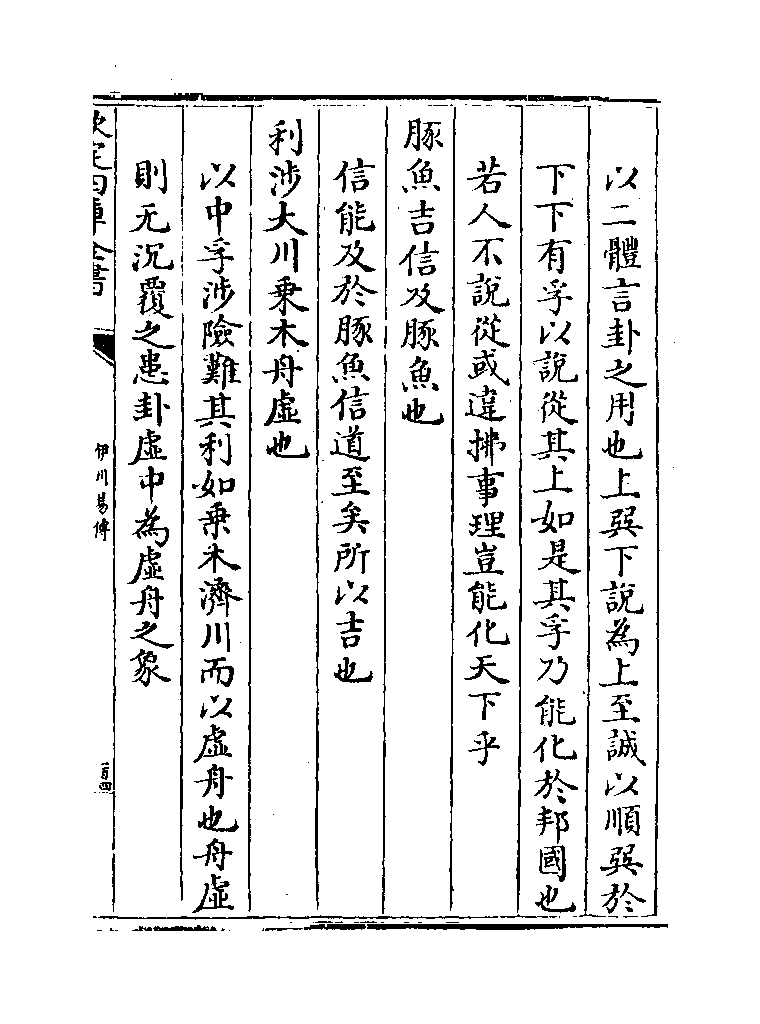 以二體言卦之用也上巽下說為上至誠以順巽於
下下有孚以說從其上如是其孚乃能化於邦國也
若人不說從或違拂事理豈能化天下乎
豚魚吉信及豚魚也
信能及於豚魚信道至矣所以吉也
利涉大川乗木舟虛也
以中孚涉險難其利如乗木濟川而以虛舟也舟虛
則无沉覆之患卦虛中為虛舟之象
欽定四庫全書
伊川易傳
一百四